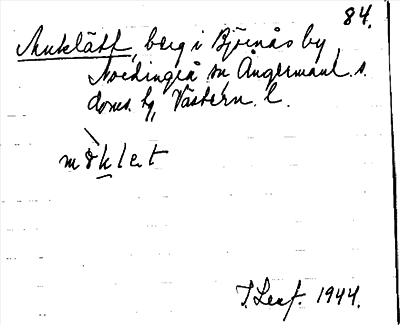 84.
Muklätt, berg i Björnås by,
Nordingrå sn, Ångermanl. s.
doms. hg, Västern. l.
mö̀klet
T. Leaf. 1944.